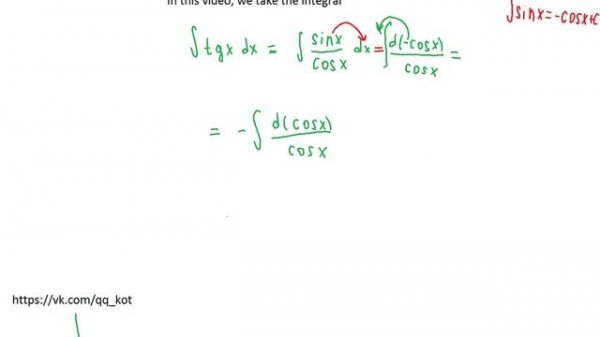 In this video, we take the integral
∫sinx=-cosx+c
∫tgx dx = ∫ sinx/cosx dx = ∫ d(-cosx)/cosx =
= -∫ d(cosx)/cosx
https://vk.com/qq_kot